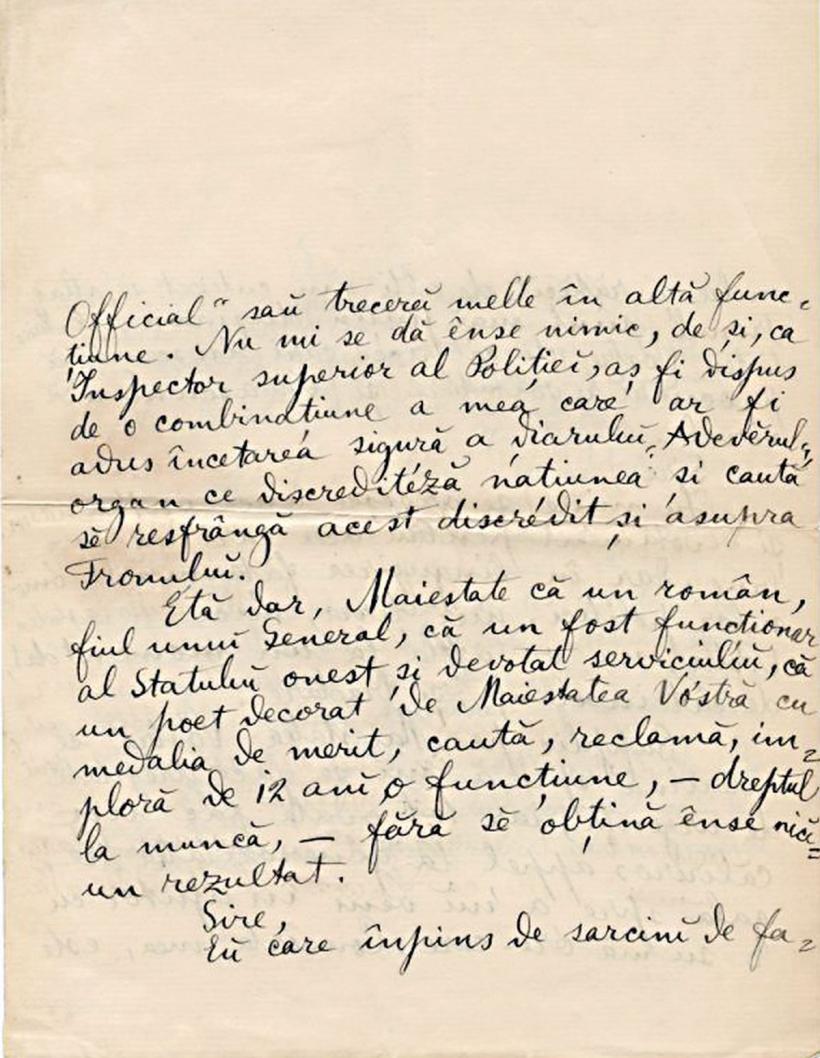 Official" saŭ trecereĭ melle în altă func-
țiune. Nu mi se dă ênse nimic, de și, ca
Inspector superior al Polițieĭ, aș fi dispus
de o combinațiune a mea, care ar fi
adus încetarea sigură a diaruluĭ „Adevĕrul",
organ ce discreditéză națiunea si caută
sĕ resfrângă acest discrédit și asupra
Tronuluĭ.
Etă dar, Maiestate că un român,
fiul unuĭ General, că un fost funcționar
al Statuluĭ onest și devotat serviciuluĭ, că
un poet decorat de Maiestatea Vóstră cu
medalia de merit, caută, reclamă, im-
ploră de 12 anĭ o funcțiune, — dreptul
la muncă, — fără sĕ obțină ênse nicĭ-
un rezultat.
Sire,
Eŭ care înpins de sarcinĭ de fa-